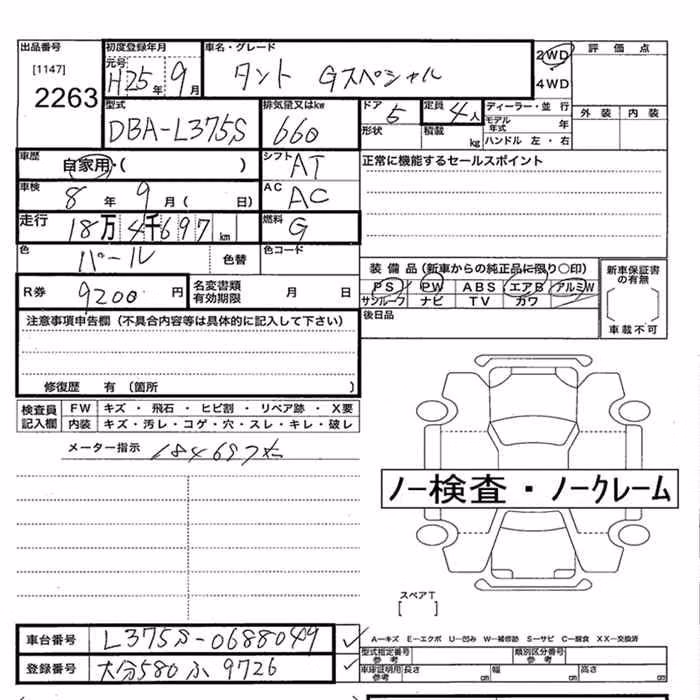 出品番号 初度登録年月 車名・グレード 2WD 評価点
[1147] 元号
2263 H25年 9月 タント Gスペシャル 4WD
型式 排気量又はkw ドア 5 定員 4人 ディーラー・並行 外装 内装
DBA-L375S 660 形状 積載 kg モデル年式 年
ハンドル 左・右
車歴 自家用・( ) シフト AT 正常に機能するセールスポイント
車検 8年 9月( 日) AC AC
走行 18万4千697km 燃料 G
色 パール 色替 色コード
装備品(新車からの純正品に限り○印) 新車保証書の有無
R券 9200円 名変書類有効期限 月 日 PS PW ABS エアB アルミW
サンルーフ ナビ TV カワ
注意事項申告欄(不具合内容等は具体的に記入して下さい) 後日品 車載不可
修復歴 有(箇所 )
検査員記入欄 FW キズ・飛石・ヒビ割・リペア跡・X要
内装 キズ・汚レ・コゲ・穴・スレ・キレ・破レ
メーター指示 184697
ノー検査・ノークレーム
スペアT
[ ]
車台番号 L375S-0688049 A-キズ E-エクボ U-凹み W-補修跡 S-サビ C-腐食 XX-交換済
型式指定番号 参考 類別区分番号 参考
登録番号 大分580ふ9726 車庫証明用参考 長さ cm 幅 cm 高さ cm